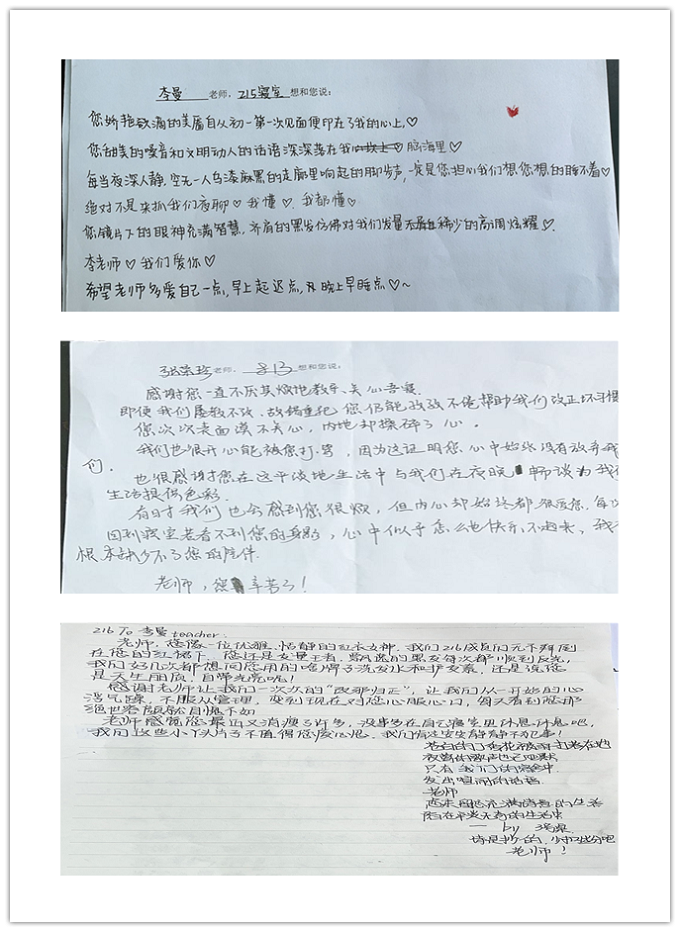 李曼 老师，215寝室 想和您说：
您娇艳欲滴的美腐自从初一第一次见面便印在了我的心上♡
您甜美的嗓音和文明动人的话语深深落在我脑海里♡
每当夜深人静，空无一人乌漆麻黑的走廊里响起的脚步声，一定是您担心我们想您想的睡不着♡
绝对不是来抓我们夜聊♡我懂♡，我都懂♡
您镜片下的眼神充满智慧，齐肩的黑发仿佛对我们发量稀少的高调炫耀♡.
李老师♡我们爱你♡
希望老师多爱自己一点，早上起迟点，晚上早睡点♡~
老师，813 想和您说：
感谢您一直不厌其烦地教导、关心吾寝.
即便我们屡教不改、故错重犯，您仍能孜孜不倦帮助我们改正坏习惯
您次次表面漠不关心，内地却操碎了心。
我们也很开心能被您打·骂，因为这证明您心中始终没有放弃我
们.
也很感谢您在这平淡地生活中与我们在夜晚畅谈为我们
生活提供色彩.
有时我们也会感到您很烦，但内心却始终都很爱您，每次
回到寝室若看不到您的身影，心中似乎怎么也快乐不起来，我们
根本缺少不了您的陪伴.
老师，您辛苦了！
216 To 李曼 teacher：
老师，您像一位优雅、恬静的红衣女神，我们216成员们无不拜倒
在您的红裙下，您还是发量王者，飘逸的黑发每次都顺到反光，
我们好几次都想问您用的啥牌子洗发水和护发素，还是说您
是天生丽质，自带光亮呢！
感谢老师让我们一次次的“改邪归正”，让我们从一开始的心
浮气躁，不服从管理，变到现在对您心服口服，每天看到您那
绝世容颜就自愧不如
老师感觉您最近又消瘦了许多，没事多在自己寝室里休息休息吧，
我们这些小丫头片子不值得您废心思，我们肯定安安静静不惹事！
只有我们的寝室中
发出喧闹的话语
老师
by
老师！